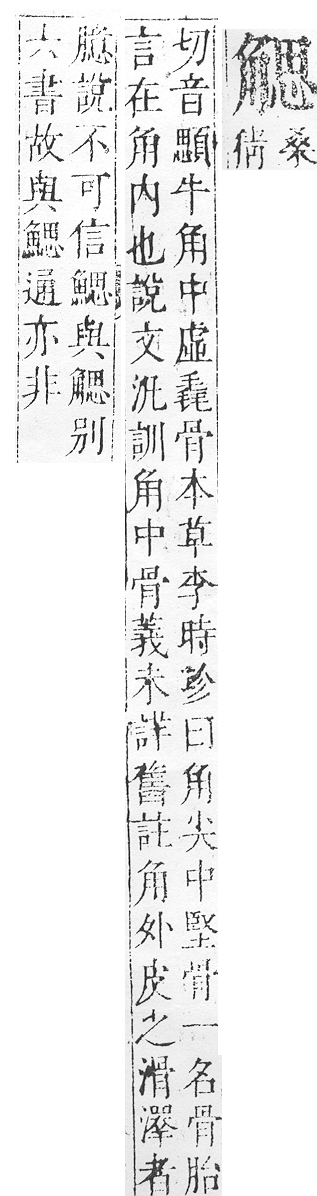 䚡
桑
切音顋牛角中虛毳骨本草李時珍曰角尖中堅骨一名骨胎
言在角內也說文汎訓角中骨義未詳舊註角外皮之滑澤者
臆說不可信鰓與䚡別
六書故與鰓通亦非